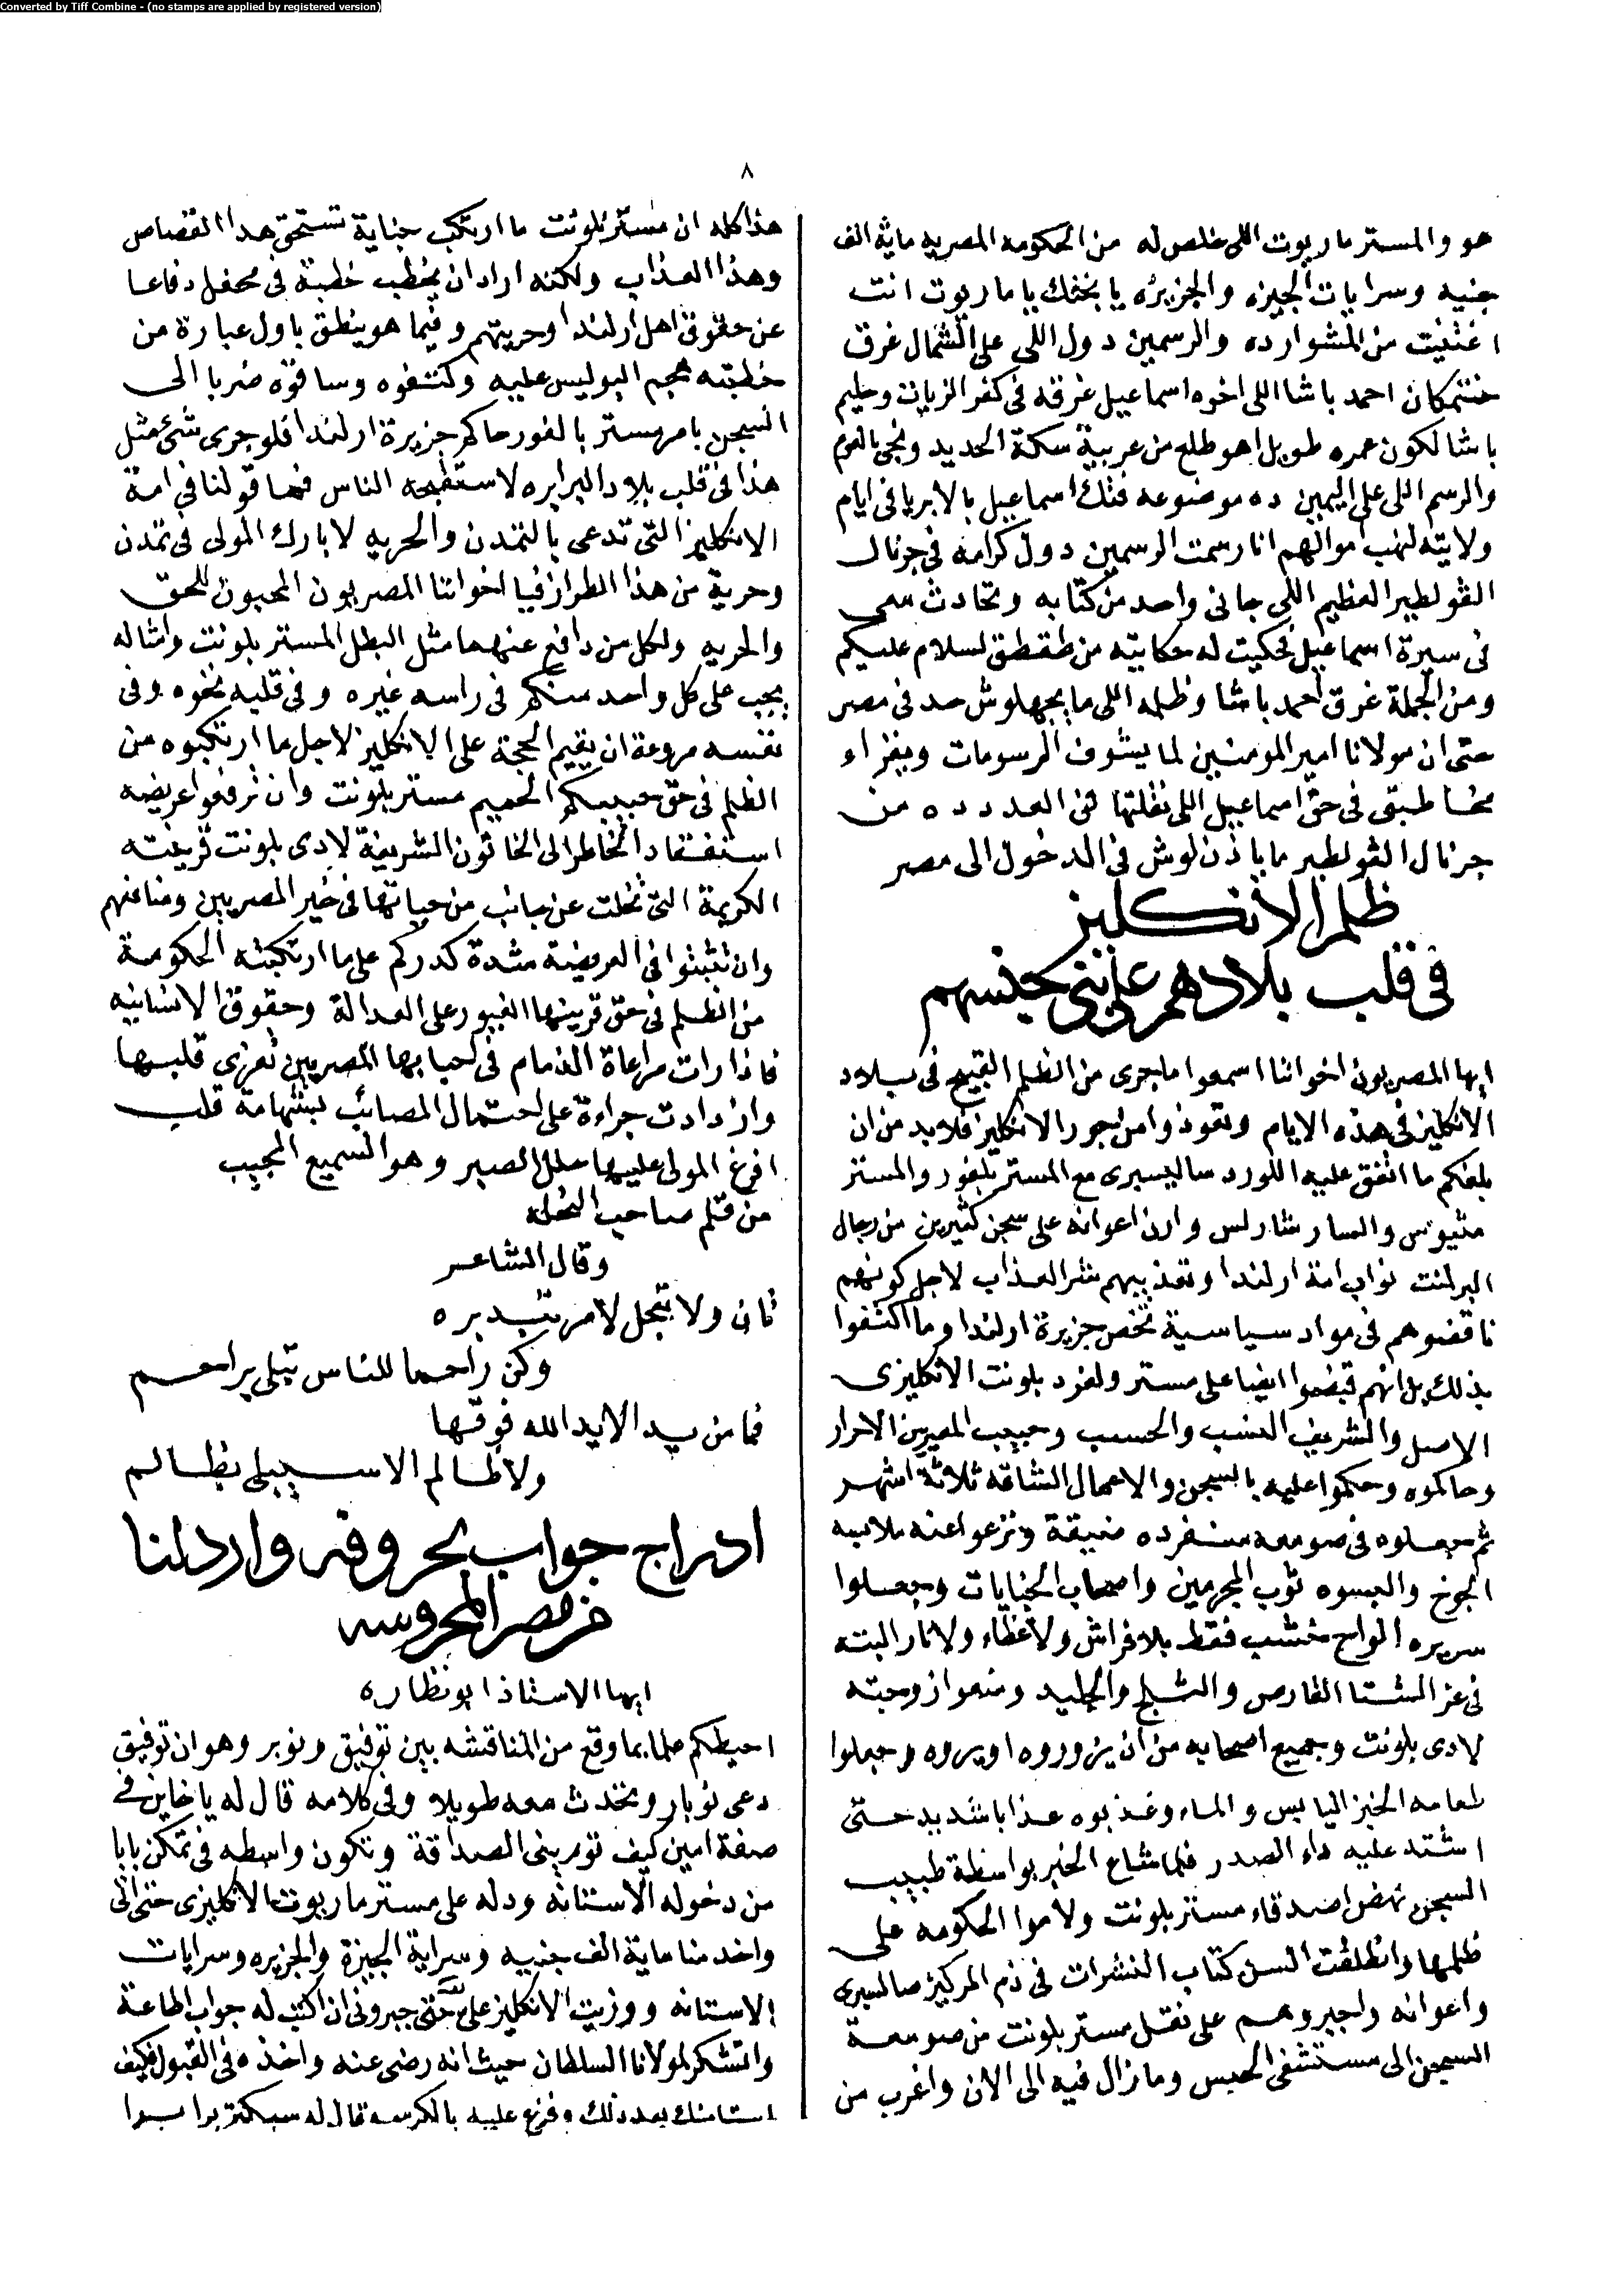 Converted by Tiff Combine - (no stamps are applied by registered version)
٨
هو والمستر ماربوت اللى خلص له من الحكومه المصريه ماية الف
جنيه وسرايات الجيزه والجزيره يا بختك يا ماربوت انت
اغتنيت من المشوارده والرسمين دول اللى على الشمال غرق
احمد باشا اللى اخوه اسماعيل غرقه فى كفر الزيات وحليم
باشا لكون عمره طويل اهو طلع من عربية سكة الحديد ونجى بالعوم
والرسم اللى على اليمين ده موضوعه فتك اسماعيل بالابريا فى ايام
ولايته لنهب اموالهم انا رسمت الرسمين دول كرامه فى جرنال
الڤولطير العظيم اللى جانى واحد من كتابه وتحادث معى
فى سيرة اسماعيل فحكيت له حكايته من طقطق لسلام عليكم
ومن الجملة غرق احمد باشا وظلمه اللى ما يجهلوش حد فى مصر
حتى ان مولانا امير المومنين لما يشوف الرسومات ويقراء
مخاطبتى فى حق اسماعيل اللى نقلتها فى العدد ده من
جرنال الڤولطير ما ياذن لوش فى الدخول الى مصر
ظلم الانكليز
فى قلب بلادهم على بنى جنسهم
ايها المصريون اخواننا اسمعوا ما جرى من الظلم القبيح فى بلاد
الانكليز فى هذه الايام وتعوذوا من جور الانكليز فلابد من ان
بلغكم ما اتفق عليه اللورد سالیسبرى مع المستر بلفور والمستر
متيوس والسار شارلس وارن اعوانه على سجن كثيرين من رجال
البرلمنت نواب امة ارلندا وتعذيبهم شر العذاب لاجل كونهم
ناقضوهم فى مواد سياسية تخص جزيرة ارلندا وما اكتفوا
بذلك بل انهم قبضوا ايضا على مستر ولفرد بلونت الانكليزى
الاصل والشريف النسب والحسب وحبيب المصريين الاحرار
وحاكموه وحكموا عليه بالسجن والاعمال الشاقه ثلاثة اشهر
ثم جعلوه فى صومعه منفرده ضيقة ونزعوا عنه ملابسه
الجوخ والبسوه ثوب المجرمين واصحاب الجنايات وجعلوا
سريره الواح خشب فقط بلا فراش ولا غطاء ولا نار البته
فى عز الشتا القارص والثلج والجليد ومنعوا زوجته
لادى بلونت وجميع اصحابه من ان يزوروه او يروه وجعلوا
طعامه الخبز اليابس والماء وعذبوه عذابا شديد حتى
اشتد عليه داء الصدر فلما شاع الخبر بواسطة طبيب
السجن نهض اصدقاء مستر بلونت ولاموا الحكومه على
ظلمها وانطلقت السن كتاب النشرات فى ذم المركيز صالسبرى
واعوانه واجبروهم على نقل مستر بلونت من صومعة
السجن الى مستشفى الحبس وما زال فيه الى الان واغرب من
هذا كله ان مستر بلونت ما ارتكب جناية تستحق هدا القصاص
وهذا العذاب ولكنه اراد ان يخطب خطبة فى محفل دفاعا
عن حقوق اهل ارلندا وحريتهم وفيما هو ينطق باول عبارة من
خطبته هجم البوليس عليه وكتفوه وساقوه ضربا الى
السجن بامر مستر بالفور حاكم جزيرة ارلندا فلو جرى شئ مثل
هذا فى قلب بلاد البرابره لاستقبحه الناس فما قولنا فى امة
الانكليز التى تدعى بالتمدن والحريه لا بارك المولى فى تمدن
وحرية من هذا الطراز فيا اخواننا المصريون المحبون للحق
والحريه ولكل من دافع عنهما مثل البطل المستر بلونت وامثاله
يجب على كل واحد منكم فى راسه غيره وفى قلبه نخوه وفى
نفسه مروءة ان يقيم الحجة على الانكليز لاجل ما ارتكبوه من
الظلم فى حق حبيبكم الحميم مستر بلونت وان ترفعوا عريضه
استفقاد الخاطر الى الخاتون الشريفة لادى بلونت قرينته
الكريمة التى تخلت عن جانب من حياتها فى خير المصريين ومنافعهم
وان تثبتوا فى العريضة شدة كدركم على ما ارتكبته الحكومة
من الظلم فى حق قرينها الغيور على العدالة وحقوق الانسانيه
فاذا رات مراعاة الذمام فى احبابها المصريين تعزى قلبها
وازدادت جراءة على احتمال المصائب بشهامة قلب
افرغ المولى عليها حلل الصبر وهو السميع المجيب
من قلم صاحب النحله
وقال الشاعر
تان ولا تعجل لامر تريده
وكن راحما للناس تبلى براحم
فما من يد الا يد الله فوقها
ولا ظالم الا سيبلى بظالم
ادراج جواب بحروفه وارد لنا
من مصر المحروسه
ايها الاستاذ ابو نظاره
احيطكم علما بما وقع من المناقشه بين توفيق ونوبر وهو ان توفيق
دعى نوبار وتحدث معه طويلا وفى كلامه قال له يا خاين فى
صفة امين كيف تورينى الصداقة وتكون واسطه فى تمكن بابا
من دخوله الاستانه ودله على مستر ماربوت الانكليزى حتى اتى
واخد منا ماية الف جنيه وسراية الجيزة والجزيره وسرايات
الاستانه ووزيت الانكليز على حتى جبرونى ان اكتب له جواب اطاعة
واتشكر لمولانا السلطان حيث انه رضى عنه واخذه فى القبول فكيف
استامنك بعد ذلك وفزع عليه بالكرسه قال له سيكتر برا برا